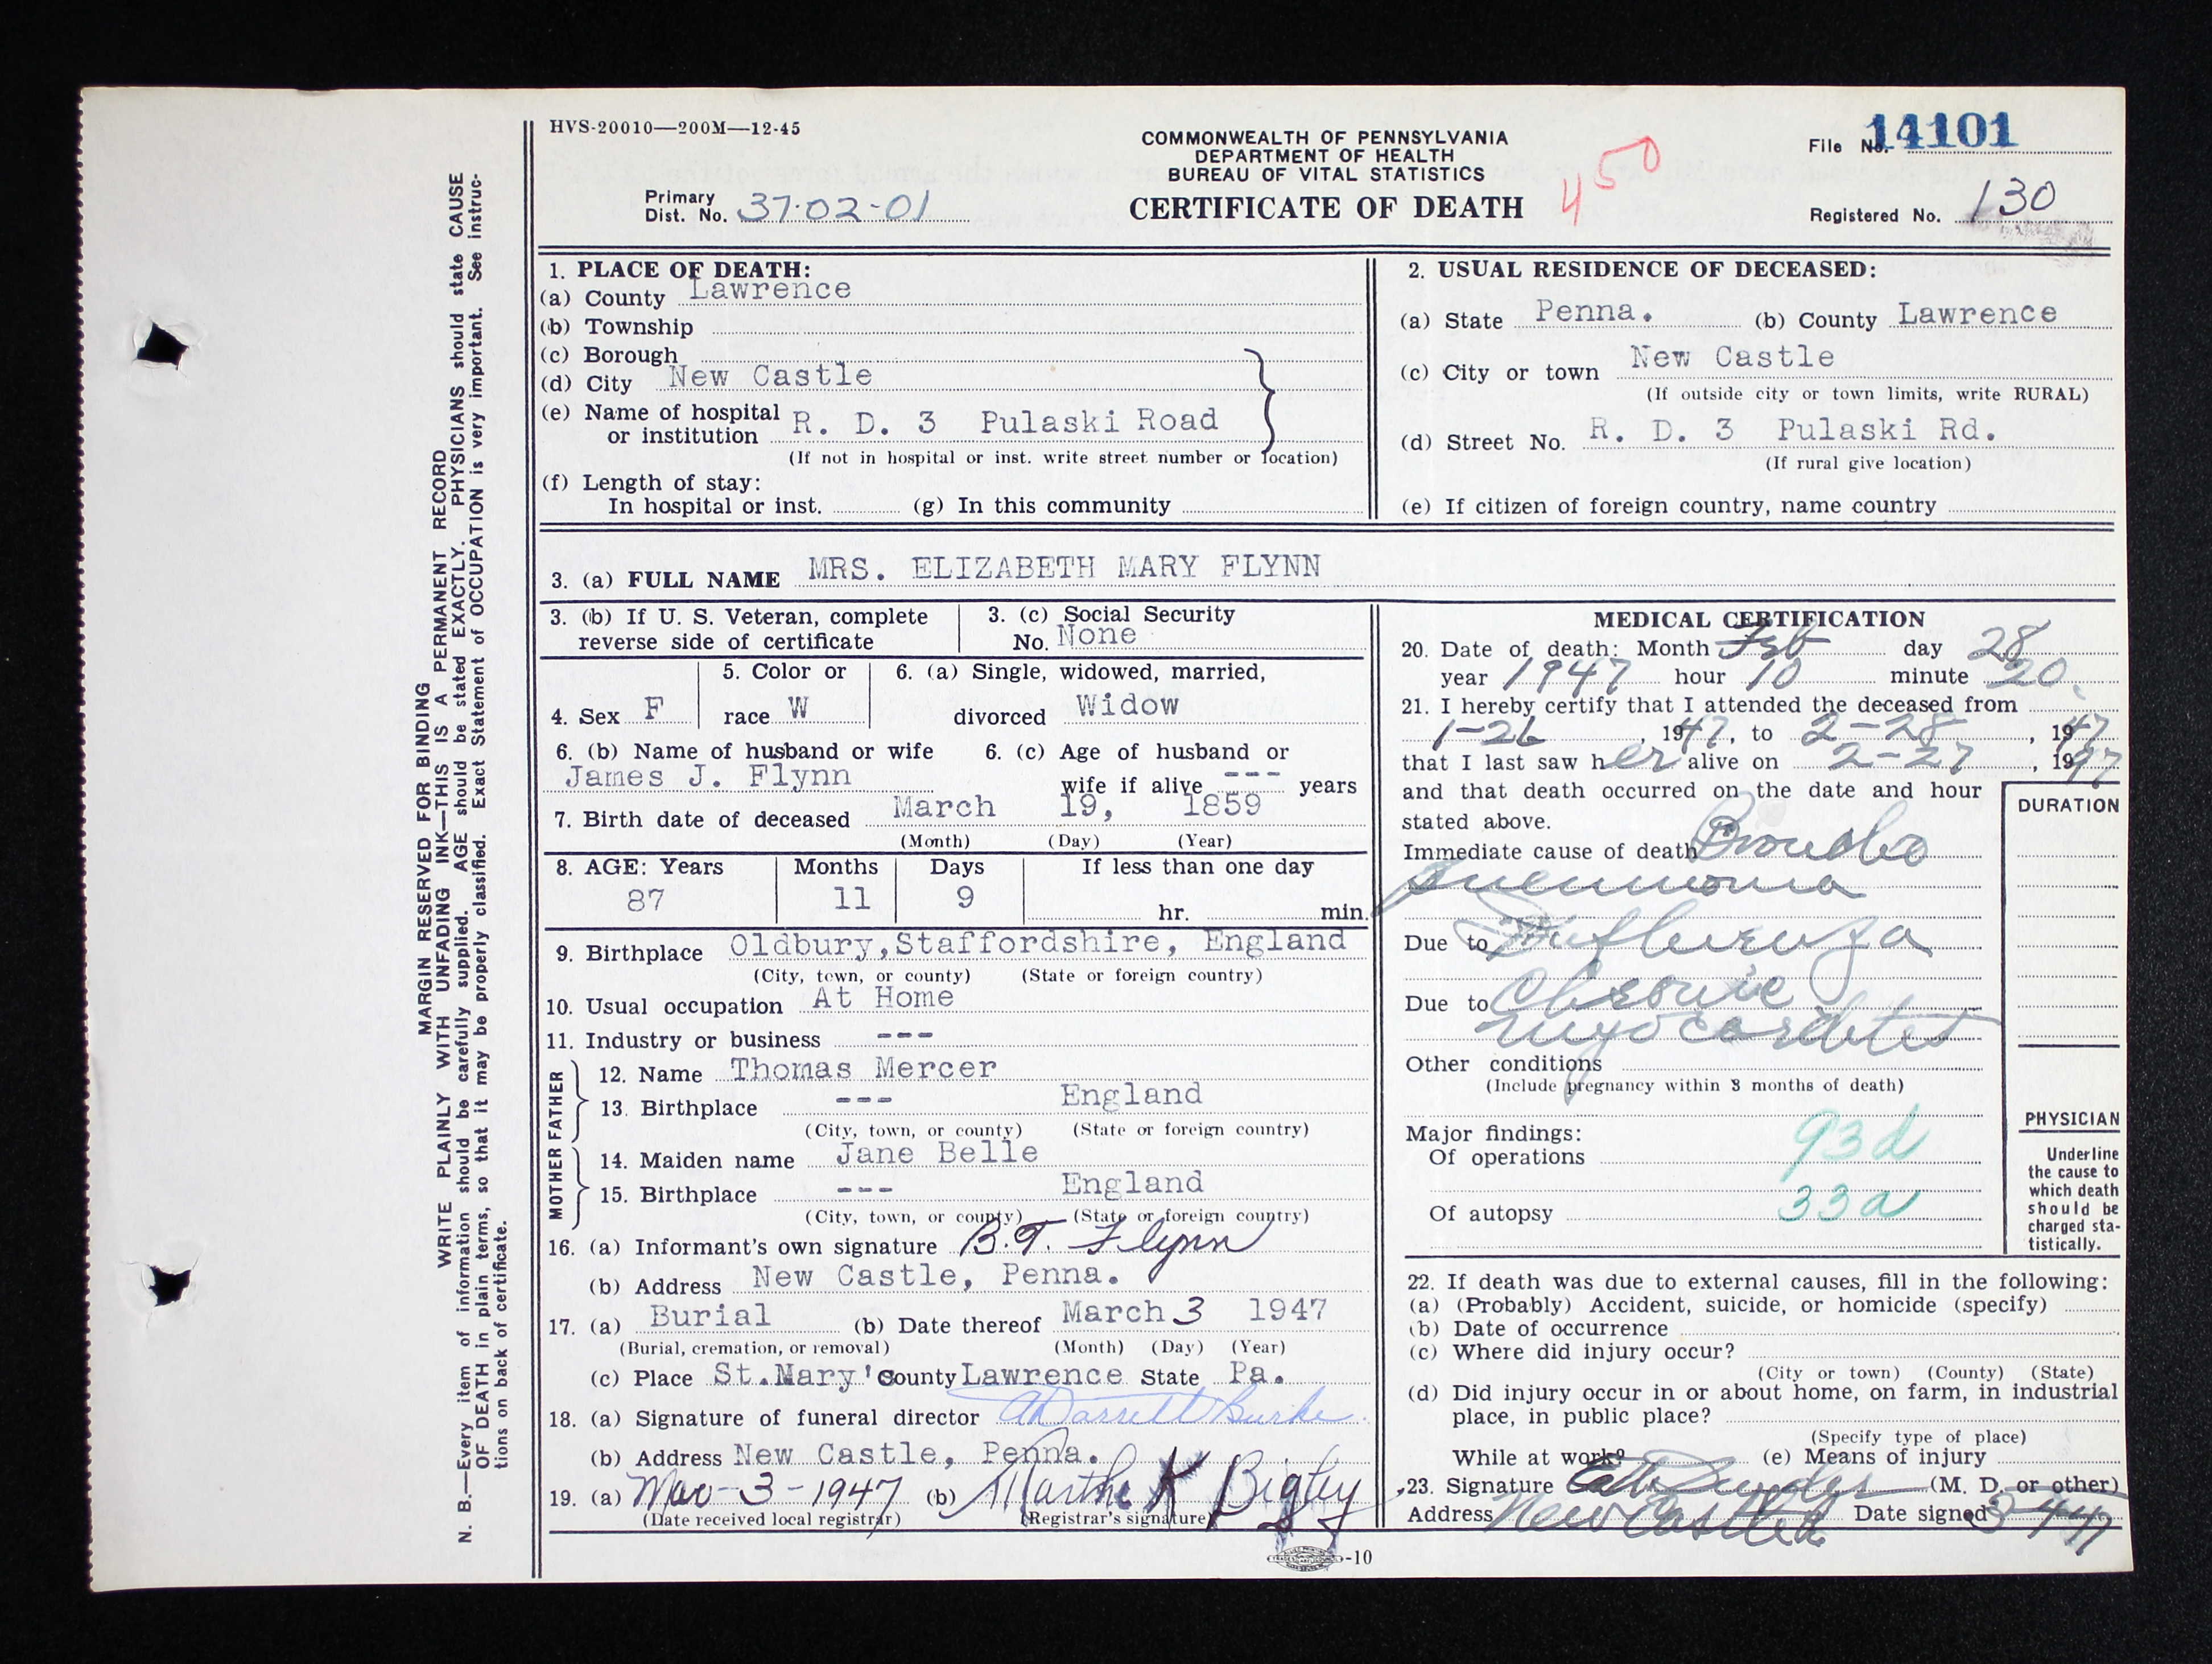 HVS-20010—200M—12-45
COMMONWEALTH OF PENNSYLVANIA
DEPARTMENT OF HEALTH
BUREAU OF VITAL STATISTICS
CERTIFICATE OF DEATH
450
File No. 14101
Primary
Dist. No. 37-02-01
Registered No. 130
MARGIN RESERVED FOR BINDING
WRITE PLAINLY WITH UNFADING INK—THIS IS A PERMANENT RECORD
N. B.—Every item of information should be carefully supplied. AGE should be stated EXACTLY. PHYSICIANS should state CAUSE
OF DEATH in plain terms, so that it may be properly classified. Exact Statement of OCCUPATION is very important. See instruc-
tions on back of certificate.
1. PLACE OF DEATH:
(a) County Lawrence
(b) Township
(c) Borough
(d) City New Castle
(e) Name of hospital
or institution R. D. 3 Pulaski Road
(If not in hospital or inst. write street number or location)
(f) Length of stay:
In hospital or inst. (g) In this community
2. USUAL RESIDENCE OF DECEASED:
(a) State Penna. (b) County Lawrence
(c) City or town New Castle
(If outside city or town limits, write RURAL)
(d) Street No. R. D. 3 Pulaski Rd.
(If rural give location)
(e) If citizen of foreign country, name country
3. (a) FULL NAME MRS. ELIZABETH MARY FLYNN
3. (b) If U. S. Veteran, complete
reverse side of certificate
3. (c) Social Security
No. None
4. Sex F
5. Color or
race W
6. (a) Single, widowed, married,
divorced Widow
6. (b) Name of husband or wife
James J. Flynn
6. (c) Age of husband or
wife if alive --- years
7. Birth date of deceased March 19, 1859
(Month) (Day) (Year)
8. AGE: Years Months Days If less than one day
87 11 9 hr. min.
9. Birthplace Oldbury,Staffordshire, England
(City, town, or county) (State or foreign country)
10. Usual occupation At Home
11. Industry or business ---
FATHER
12. Name Thomas Mercer
13. Birthplace --- England
(City, town, or county) (State or foreign country)
MOTHER
14. Maiden name Jane Belle
15. Birthplace --- England
(City, town, or county) (State or foreign country)
16. (a) Informant's own signature B.T. Flynn
(b) Address New Castle, Penna.
17. (a) Burial (b) Date thereof March 3 1947
(Burial, cremation, or removal) (Month) (Day) (Year)
(c) Place St.Mary's County Lawrence State Pa.
18. (a) Signature of funeral director Burke
(b) Address New Castle, Penna.
19. (a) Mar-3-1947 (b) Martha K Bigley
(Date received local registrar) (Registrar's signature)
-10
MEDICAL CERTIFICATION
20. Date of death: Month Feb day 28
year 1947 hour 10 minute 20.
21. I hereby certify that I attended the deceased from
1-26, 1947, to 2-28, 1947
that I last saw her alive on 2-27, 1947
and that death occurred on the date and hour
stated above.
DURATION
Immediate cause of death Broncho
pneumonia
Due to Influenza
Due to Chronic
myocarditis
Other conditions
(Include pregnancy within 3 months of death)
Major findings:
Of operations 93d
Of autopsy 33a
PHYSICIAN
Underline
the cause to
which death
should be
charged sta-
tistically.
22. If death was due to external causes, fill in the following:
(a) (Probably) Accident, suicide, or homicide (specify)
(b) Date of occurrence
(c) Where did injury occur?
(City or town) (County) (State)
(d) Did injury occur in or about home, on farm, in industrial
place, in public place?
(Specify type of place)
While at work? (e) Means of injury
23. Signature (M. D. or other)
Address New Castle Date signed 3-4-47